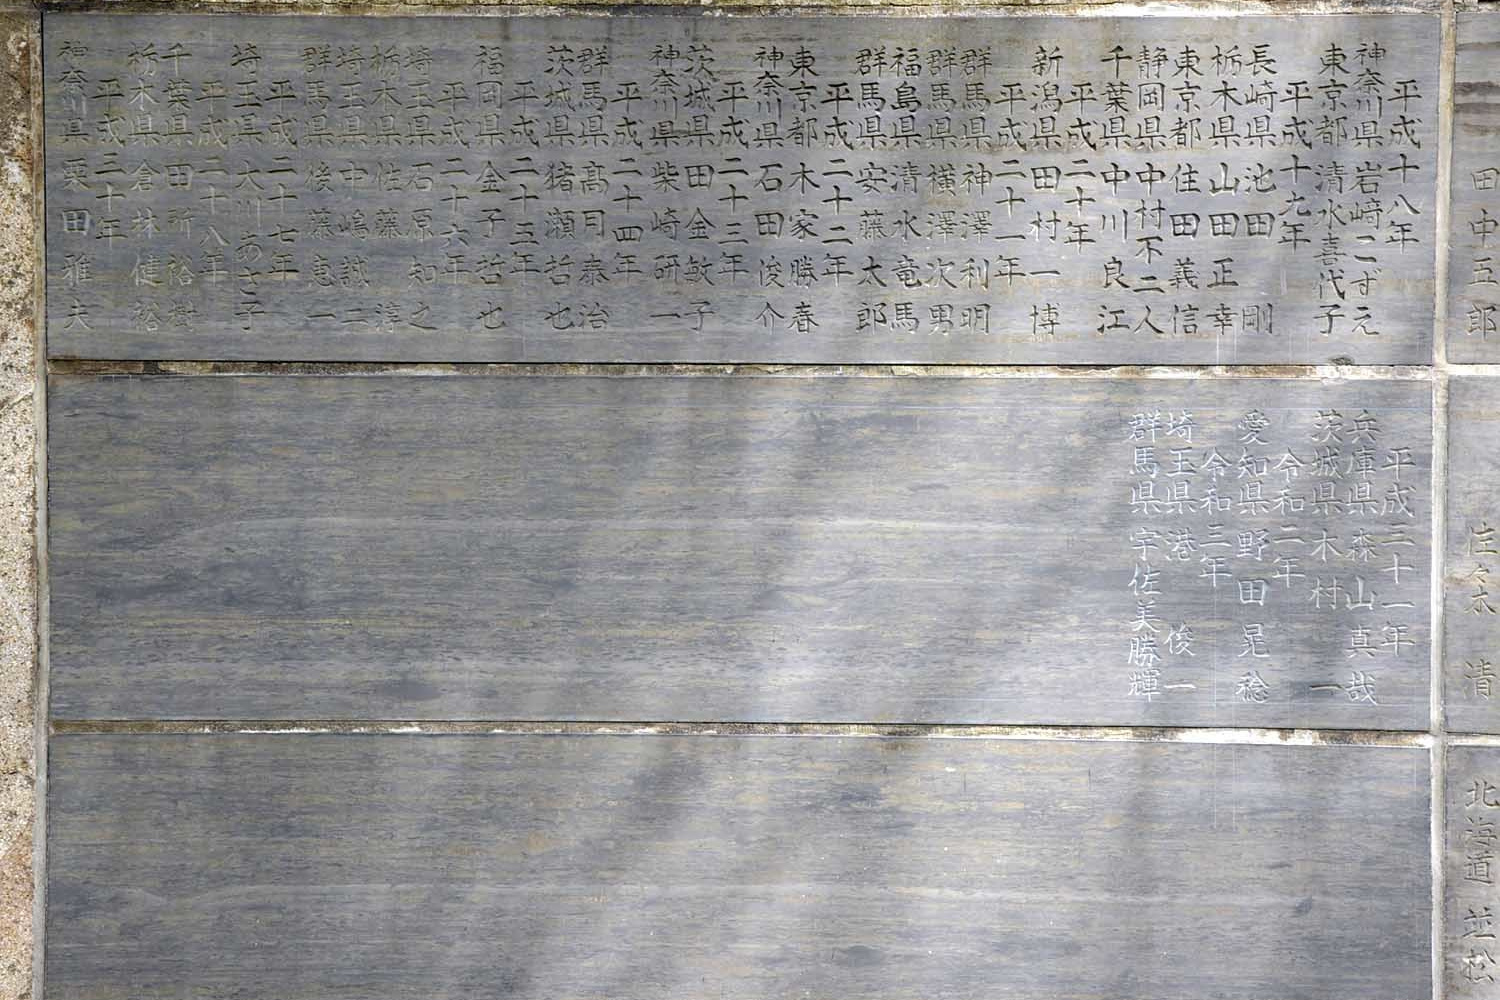 田中五郎
佐々木 清
北海道 並松
平成十八年
神奈川県 岩﨑こずえ
東京都 清水喜代子
平成十九年
長崎県 池田 剛
栃木県 山田正幸
東京都 住田義信
静岡県 中村不二人
千葉県 中川良江
平成二十年
新潟県 田村一博
平成二十一年
群馬県 神澤利明
群馬県 横澤次男
福島県 清水竜馬
群馬県 安藤太郎
平成二十二年
東京都 木家勝春
神奈川県 石田俊介
平成二十三年
茨城県 田金敏子
神奈川県 柴崎研一
平成二十四年
群馬県 髙月泰治
茨城県 猪瀬哲也
平成二十五年
福岡県 金子哲也
平成二十六年
埼玉県 石原知之
栃木県 佐藤 淳
埼玉県 中嶋誠二
群馬県 後藤恵一
平成二十七年
埼玉県 大川あさ子
平成二十八年
千葉県 田所裕樹
栃木県 倉林健裕
平成三十年
神奈川県 栗田雅夫
平成三十一年
兵庫県 森山真哉
茨城県 木村 一
令和二年
愛知県 野田晃稔
令和三年
埼玉県 港 俊一
群馬県 宇佐美勝輝